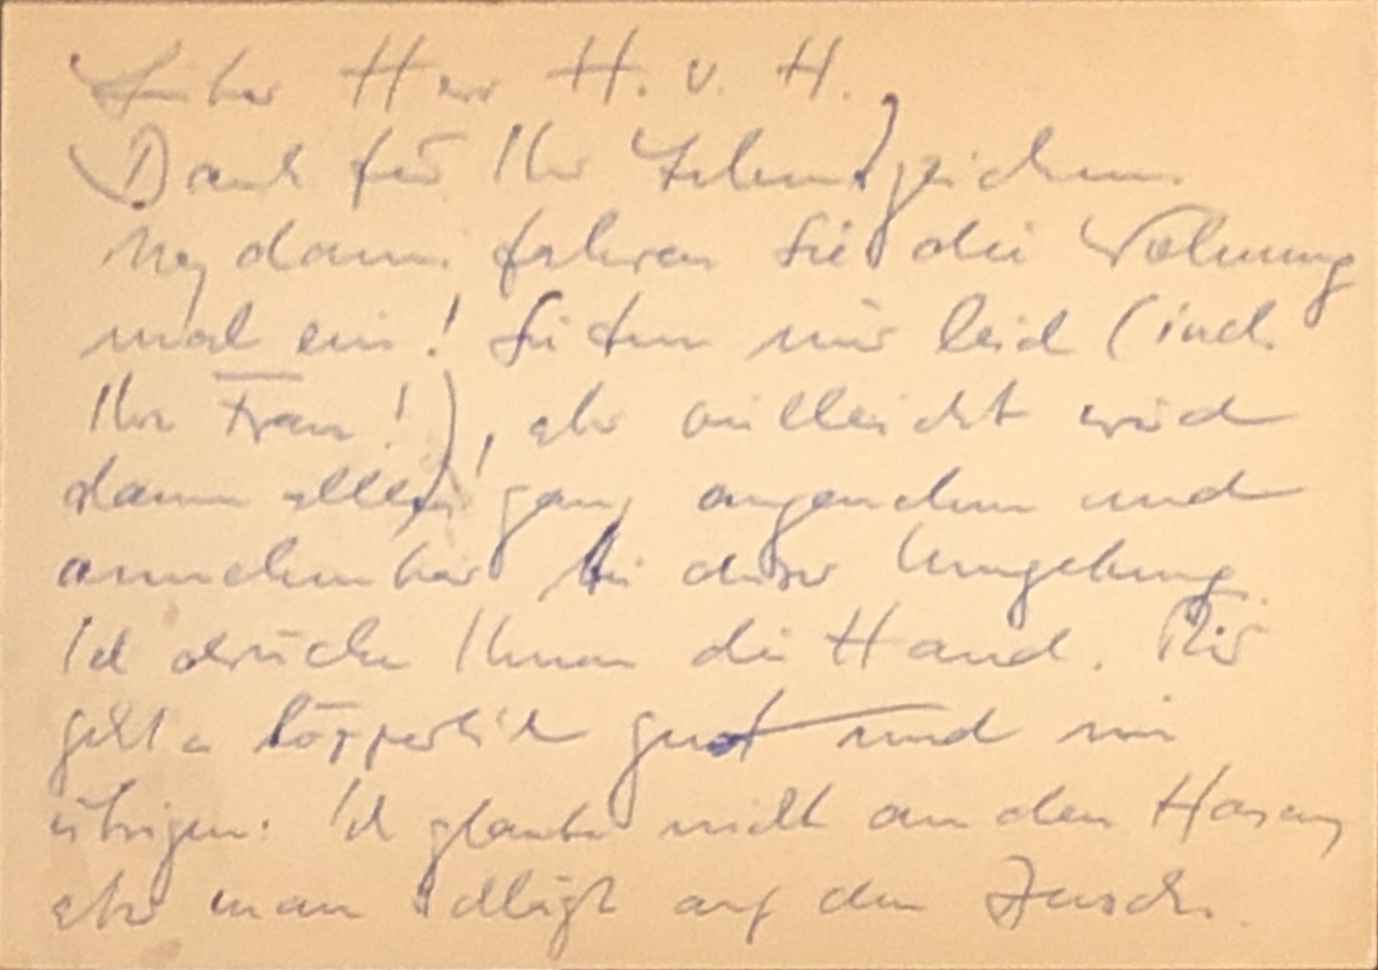 Lieber Herr H. v. H.,
Dank für Ihr Lebenszeichen.
Na, dann fahren Sie die Wohnung
mal ein! Sie tun mir leid (incl.
Ihre Frau!), aber vielleicht wird
dann alles ganz angenehm und
annehmbar bei dieser Umgebung.
Ich drücke Ihnen die Hand. Mir
geht es körperlich gut und im
übrigen: Ich glaube nicht an den
aber man schlägt auf den Busch.